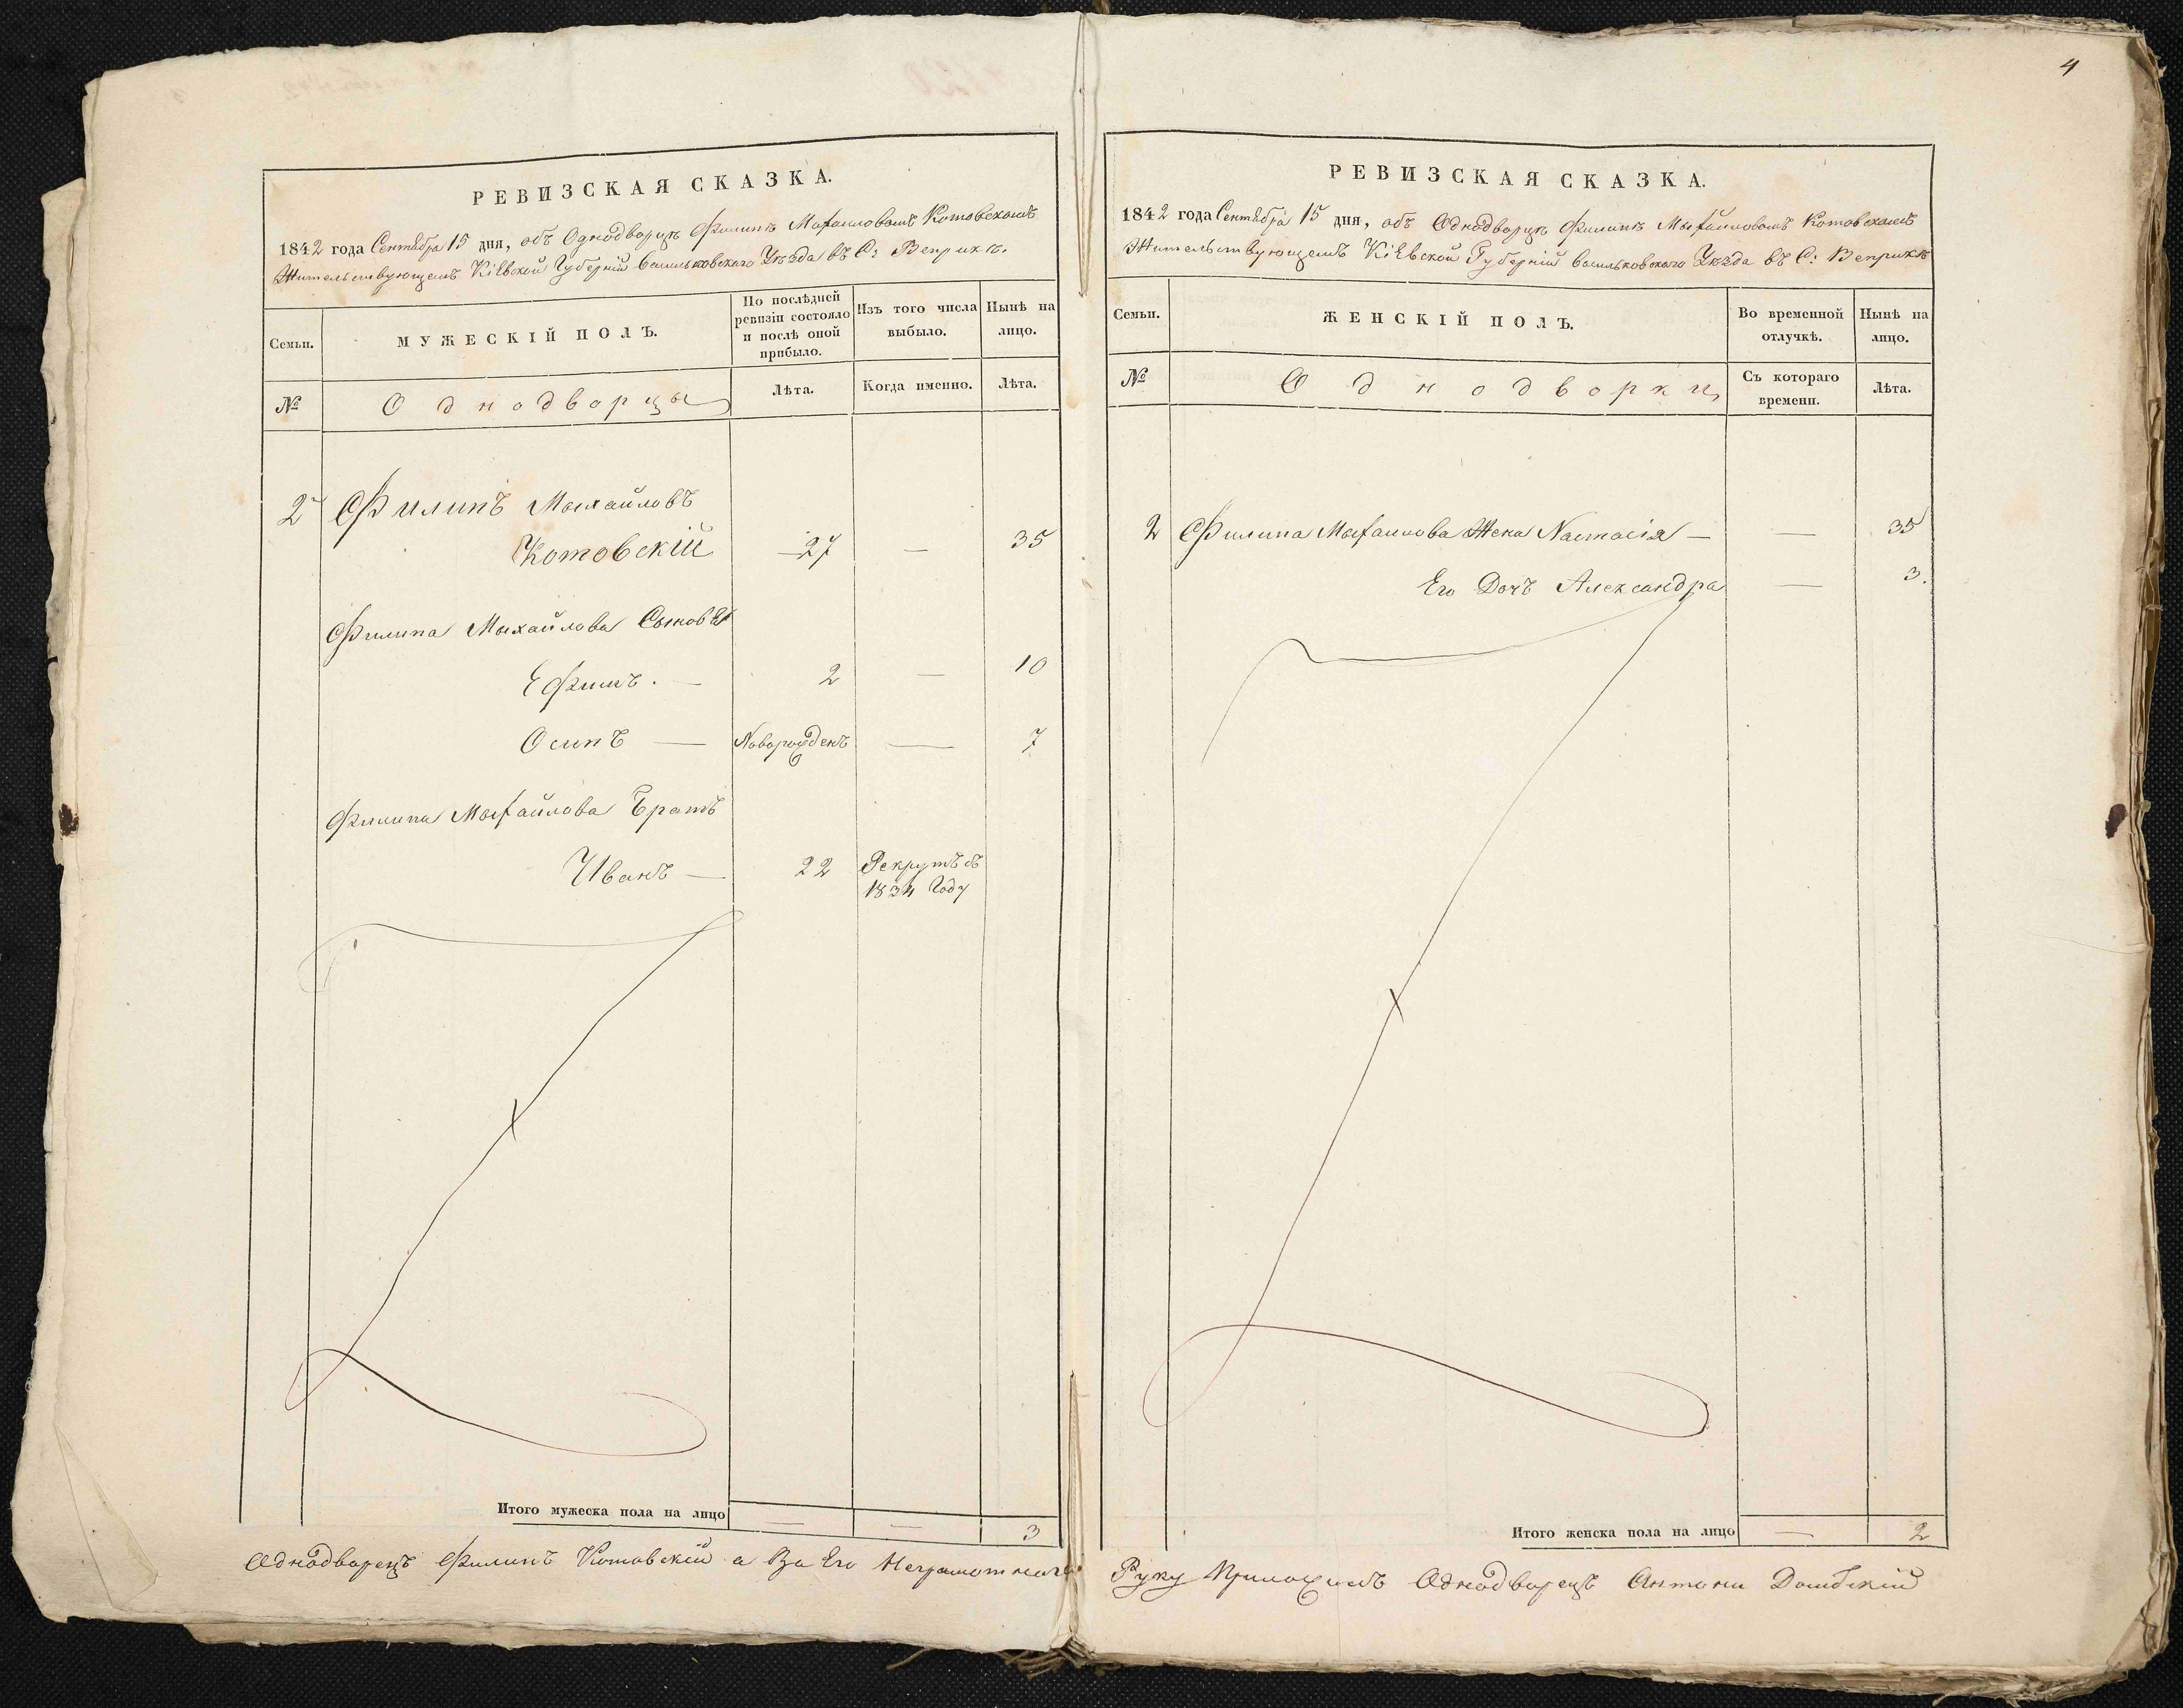 4
РЕВИЗСКАЯ СКАЗКА.
1842 года Сентября 15 дня, объ Однодворцѣ Филипѣ Михайловомъ Котовскомъ
Жительствующемъ Кіевской Губерніи Васильковскаго Уѣзда въ С: Веприкѣ.
Семьи.
МУЖЕСКІЙ ПОЛЪ.
По послѣдней ревизіи состояло и послѣ оной прибыло.
Изъ того числа выбыло.
Нынѣ на лицо.
№
Однодворцы
Лѣта.
Когда именно.
Лѣта.
2 Филипъ Михайловъ
Котовскій 27 — 35
Филипа Михайлова Сыновья
Ефимъ. — 2 — 10
Осипъ — Новорожденъ — 7
Филипа Михайлова Братъ
Иванъ — 22 Рекрутъ въ
1834 Году
Итого мужеска пола на лицо — — 3
Однодворецъ Филипъ Котовскій а За Его Неграмотнаго
РЕВИЗСКАЯ СКАЗКА.
1842 года Сентября 15 дня, объ Однодворцѣ Филипѣ Михайловомъ Котовскомъ
Жительствующемъ Кіевской Губерніи Васильковскаго Уѣзда въ С: Веприкѣ
Семьи.
ЖЕНСКІЙ ПОЛЪ.
Во временной отлучкѣ.
Нынѣ на лицо.
№
Однодворки
Съ котораго времени.
Лѣта.
2 Филипа Михайлова Жена Настасія — — 35
Его Дочъ Александра — 3.
Итого женска пола на лицо — 2
Руку Приложилъ Однодворецъ Антони